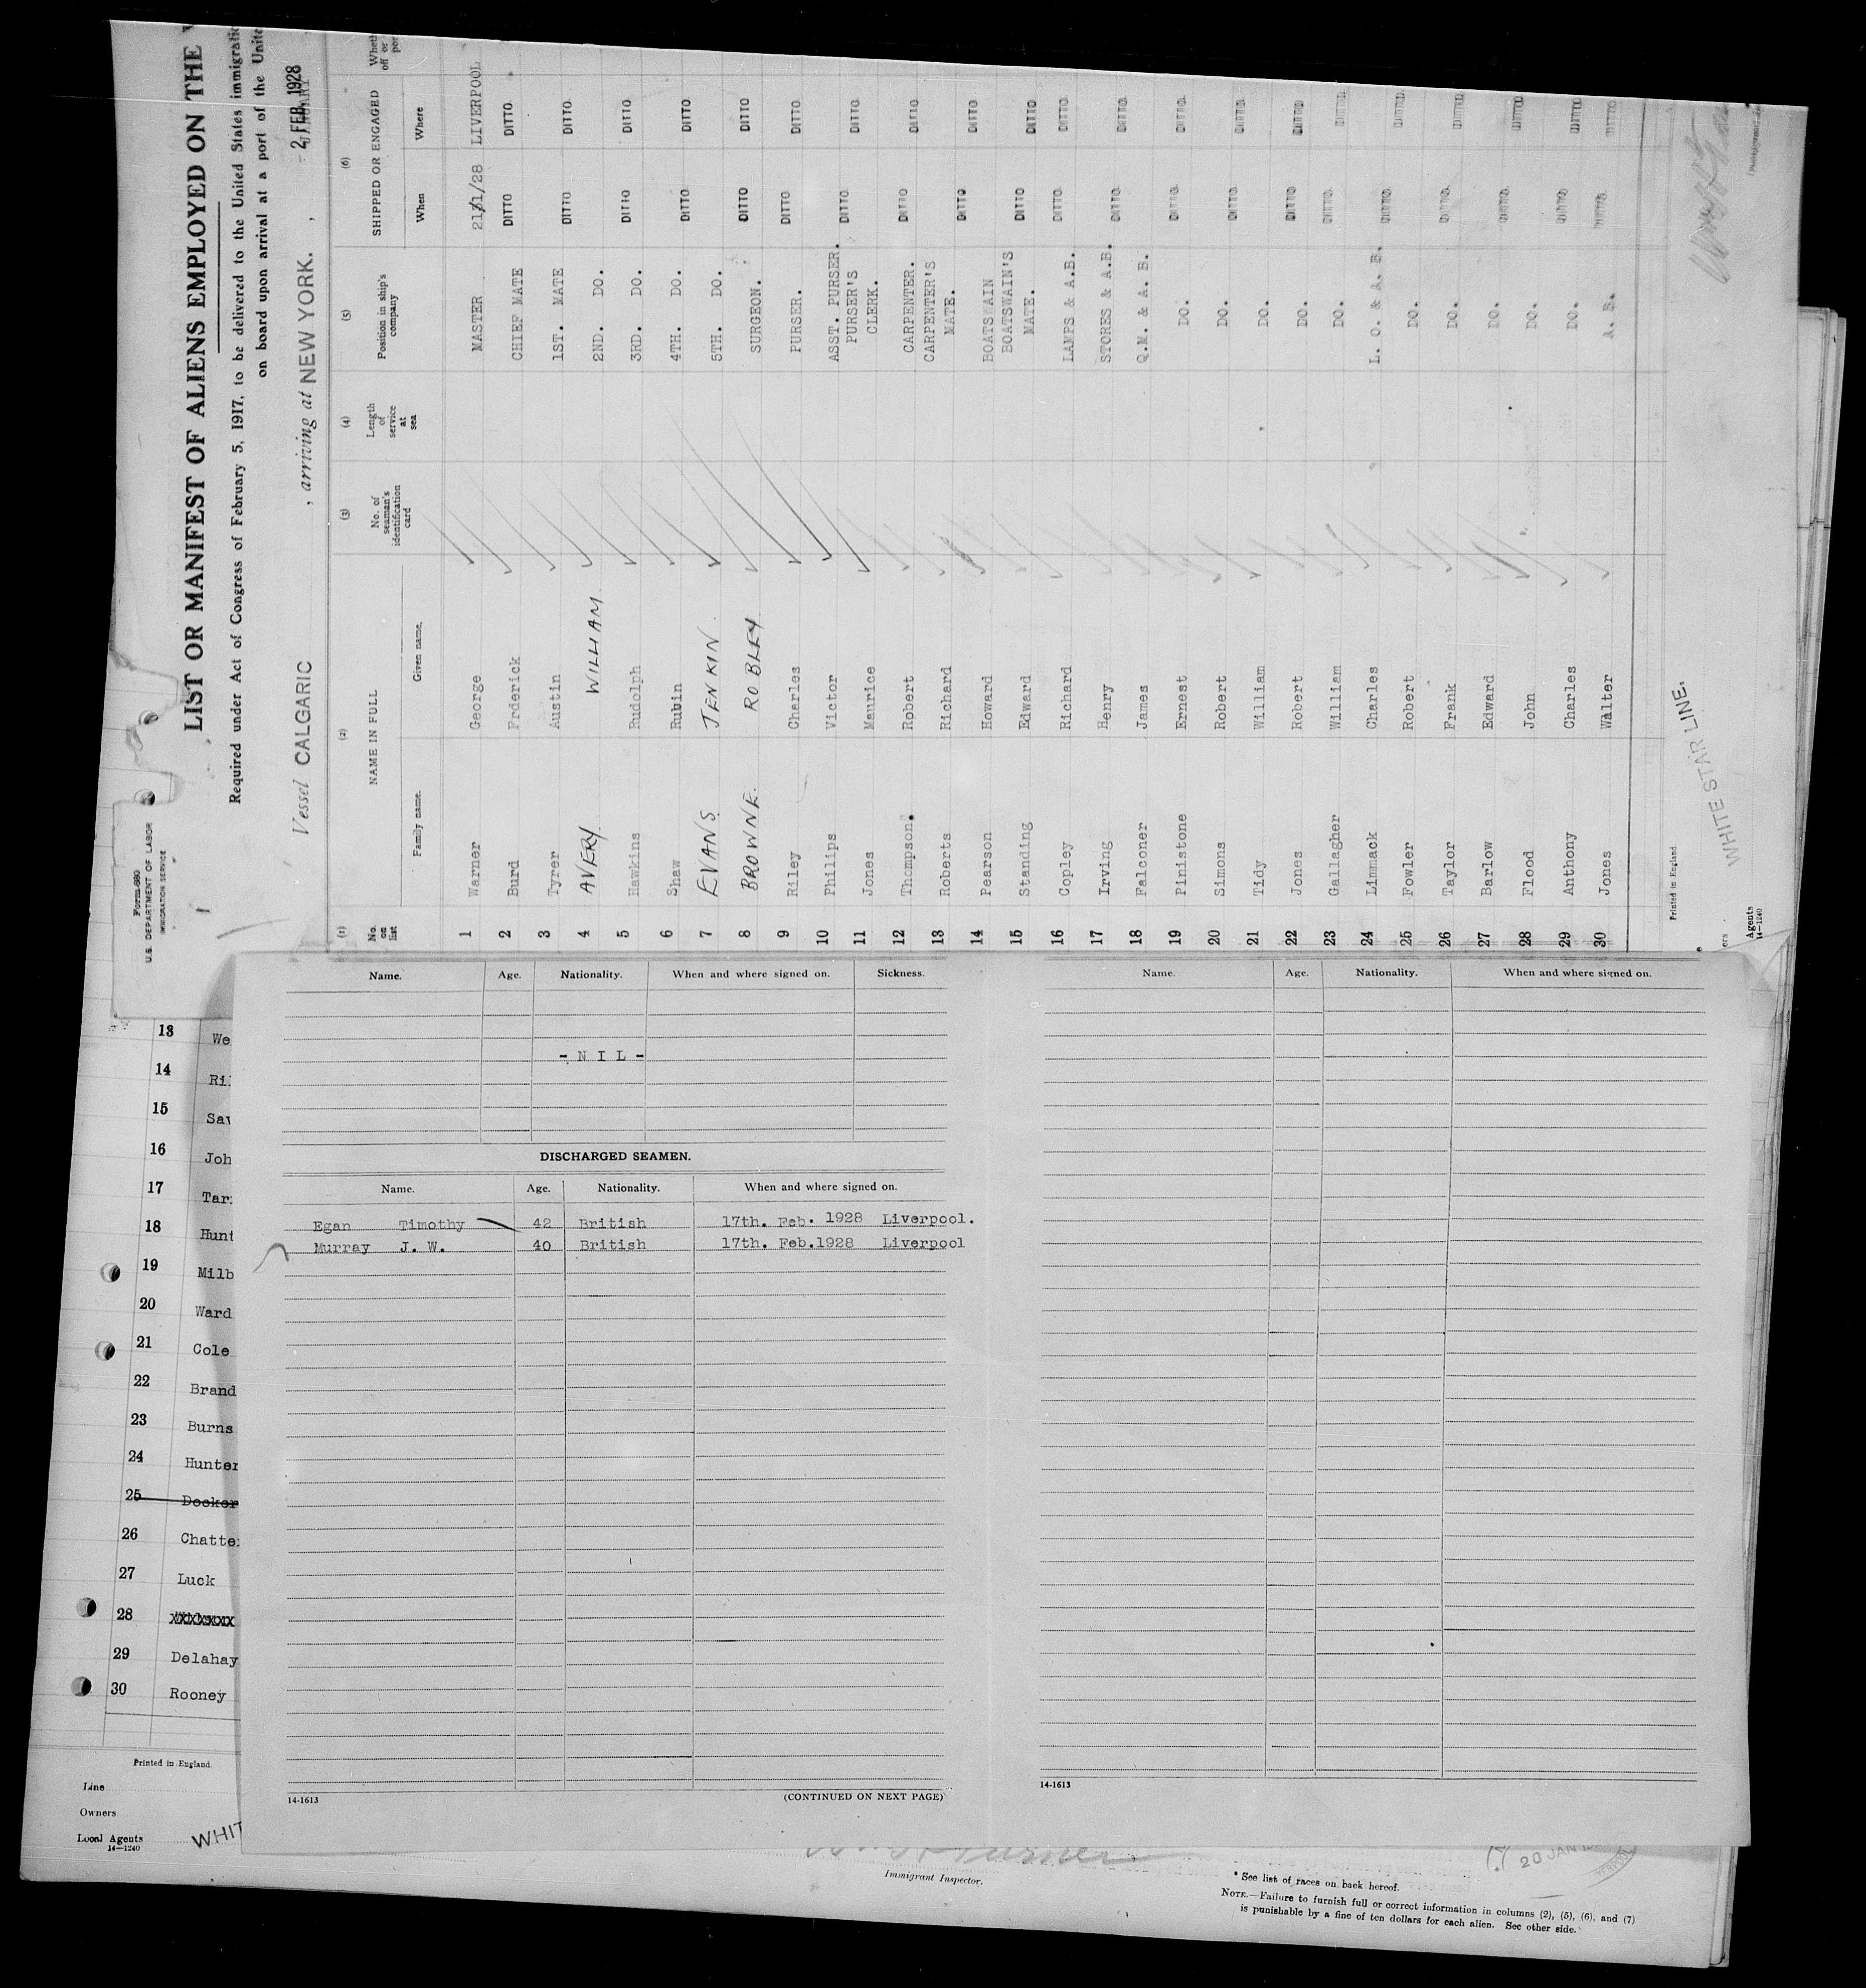 Form 680
U.S. DEPARTMENT OF LABOR
IMMIGRATION SERVICE
LIST OR MANIFEST OF ALIENS EMPLOYED ON THE
Required under Act of Congress of February 5, 1917, to be delivered to the United States
on board upon arrival at a port of the
Vessel CALGARIC , arriving at NEW YORK. , 2 FEB 1928
(1) (2) (3) (4) (5) (6)
No. on list NAME IN FULL No. of seaman's identification card Length of service at sea Position in ship's company SHIPPED OR ENGAGED
Family name. Given name. When Where
1 Warner George MASTER 21/1/28 LIVERPOOL
2 Burd Frderick CHIEF MATE DITTO DITTO
3 Tyrer Austin 1ST. MATE DITTO DITTO
4 AVERY WILLIAM 2ND. DO. DITTO DITTO
5 Hawkins Rudolph 3RD. DO. DITTO DITTO
6 Shaw Rubin 4TH. DO. DITTO DITTO
7 EVANS JENKIN. 5TH. DO. DITTO DITTO
8 BROWNE. ROBLEY. SURGEON. DITTO DITTO
9 Riley Charles PURSER. DITTO DITTO
10 Philips Victor ASST. PURSER. DITTO DITTO
11 Jones Maurice PURSER'S CLERK. DITTO DITTO
12 Thompson. Robert CARPENTER. DITTO DITTO
13 Roberts Richard CARPENTER'S MATE. DITTO DITTO
14 Pearson Howard BOATSWAIN DITTO DITTO
15 Standing Edward BOATSWAIN'S MATE. DITTO DITTO
16 Copley Richard LAMPS & A.B. DITTO DITTO
17 Irving Henry STORES & A.B. DITTO DITTO
18 Falconer James Q.M. & A. B. DITTO DITTO
19 Pinistone Ernest DO. DITTO DITTO
20 Simons Robert DO. DITTO DITTO
21 Tidy William DO. DITTO DITTO
22 Jones Robert DO. DITTO DITTO
23 Gallagher William DO. DITTO DITTO
24 Linmack Charles L. O. & A. B. DITTO DITTO
25 Fowler Robert DO. DITTO DITTO
26 Taylor Frank DO. DITTO DITTO
27 Barlow Edward DO. DITTO DITTO
28 Flood John DO. DITTO DITTO
29 Anthony Charles DO. DITTO DITTO
30 Jones Walter A. B. DITTO DITTO
Printed in England
WHITE STAR LINE.
Agents
14-1240
Name. Age. Nationality. When and where signed on. Sickness.
- N I L -
DISCHARGED SEAMEN.
Name. Age. Nationality. When and where signed on.
Egan Timothy 42 British 17th. Feb. 1928 Liverpool.
Murray J. W. 40 British 17th. Feb.1928 Liverpool
14-1613 (CONTINUED ON NEXT PAGE)
Name. Age. Nationality. When and where signed on.
14-1613
13 We
14 Ri
15 Sa
16 Joh
17 Tar
18 Hunt
19 Milb
20 Ward
21 Cole
22 Brand
23 Burns
24 Hunter
25 Docker
26 Chatte
27 Luck
28 XXXXXXX
29 Delahay
30 Rooney
Printed in England
Line
Owners
Local Agents
14-1240
WHIT
Immigrant Inspector.
20 JAN
* See list of races on back hereof.
NOTE.—Failure to furnish full or correct information in columns (2), (5), (6), and (7)
is punishable by a fine of ten dollars for each alien. See other side.